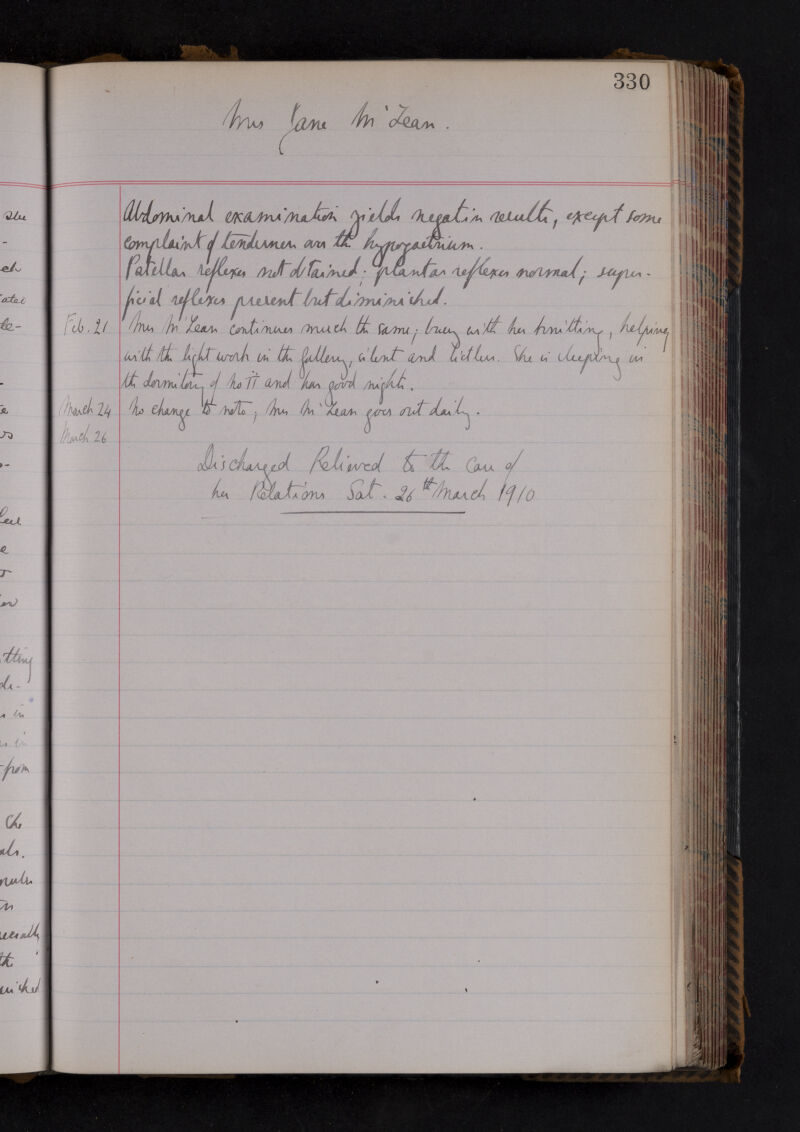 330
Mrs Jane McLean.
Abdominal examination yields negative results, except some
complaint of tenderness over the hypogastrium.
Patellar reflexes not obtained; plantar reflexes normal; super-
ficial reflexes present but diminished.
Feb. 21 Mrs McLean continues much the same; busy with her knitting, helping
with the light work in the gallery, silent and listless. She is sleeping in
the dormitory of No II and has good nights.
March 24 No change to note; Mrs McLean goes out daily.
March 26
Discharged Relieved to the Care of
her Relations Sat. 26th March 1910